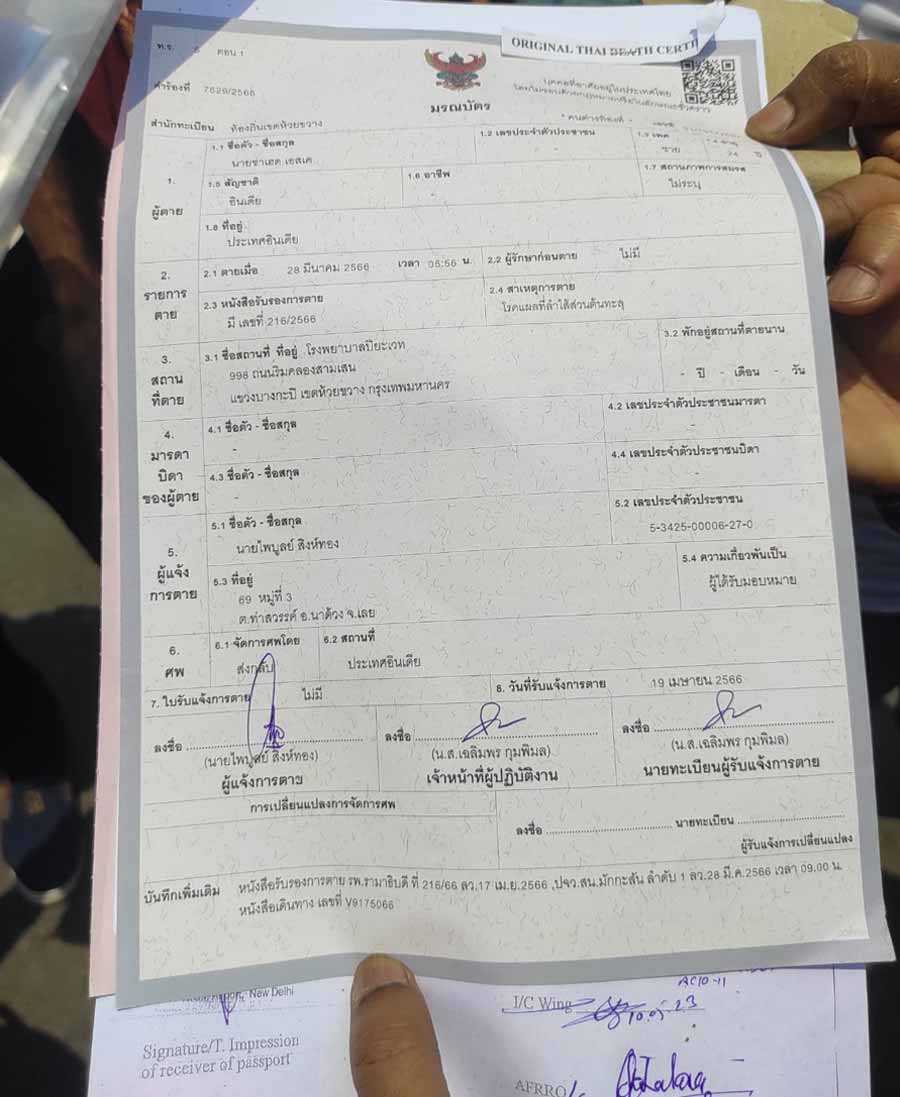 ORIGINAL THAI DEATH CERTI
ท.ร. 5 ตอน 1
คำร้องที่ 7629/2566
มรณบัตร
บุคคลที่อาศัยอยู่ในประเทศไทย
สำนักทะเบียน ท้องถิ่นเขตห้วยขวาง
1. ผู้ตาย
1.1 ชื่อตัว - ชื่อสกุล
นายซาเฮด เอสเค
1.2 เลขประจำตัวประชาชน
-
1.3 เพศ
ชาย
24 ปี
1.5 สัญชาติ
อินเดีย
1.6 อาชีพ
-
1.7 สถานภาพการสมรส
ไม่ระบุ
1.8 ที่อยู่
ประเทศอินเดีย
2. รายการตาย
2.1 ตายเมื่อ 28 มีนาคม 2566 เวลา 05:56 น.
2.2 ผู้รักษาก่อนตาย ไม่มี
2.3 หนังสือรับรองการตาย
มี เลขที่ 216/2566
2.4 สาเหตุการตาย
โรคแผลที่ลำไส้ส่วนต้นทะลุ
3. สถานที่ตาย
3.1 ชื่อสถานที่ ที่อยู่ โรงพยาบาลปิยะเวท
998 ถนนริมคลองสามเสน
แขวงบางกะปิ เขตห้วยขวาง กรุงเทพมหานคร
3.2 พักอยู่สถานที่ตายนาน
- ปี - เดือน - วัน
4. มารดา บิดา ของผู้ตาย
4.1 ชื่อตัว - ชื่อสกุล
-
4.2 เลขประจำตัวประชาชนมารดา
-
4.3 ชื่อตัว - ชื่อสกุล
-
4.4 เลขประจำตัวประชาชนบิดา
-
5. ผู้แจ้งการตาย
5.1 ชื่อตัว - ชื่อสกุล
นายไพบูลย์ สิงห์ทอง
5.2 เลขประจำตัวประชาชน
5-3425-00006-27-0
5.3 ที่อยู่
69 หมู่ที่ 3
ต.ท่าสวรรค์ อ.นาด้วง จ.เลย
5.4 ความเกี่ยวพันเป็น
ผู้ได้รับมอบหมาย
6. ศพ
6.1 จัดการศพโดย
ส่งกลับ
6.2 สถานที่
ประเทศอินเดีย
7. ใบรับแจ้งการตาย ไม่มี
8. วันที่รับแจ้งการตาย 19 เมษายน 2566
ลงชื่อ
(นายไพบูลย์ สิงห์ทอง)
ผู้แจ้งการตาย
ลงชื่อ
(น.ส.เฉลิมพร กุมพิมล)
เจ้าหน้าที่ผู้ปฏิบัติงาน
ลงชื่อ
(น.ส.เฉลิมพร กุมพิมล)
นายทะเบียนผู้รับแจ้งการตาย
การเปลี่ยนแปลงการจัดการศพ
ลงชื่อ นายทะเบียน
ผู้รับแจ้งการเปลี่ยนแปลง
บันทึกเพิ่มเติม หนังสือรับรองการตาย รพ.รามาธิบดี ที่ 216/66 ลว.17 เม.ย.2566 ,ปจว.สน.มักกะสัน ลำดับ 1 ลว.28 มี.ค.2566 เวลา 09.00 น.
หนังสือเดินทาง เลขที่ V9175066
New Delhi
I/C Wing
Signature/T. Impression
of receiver of passport
AFRRO